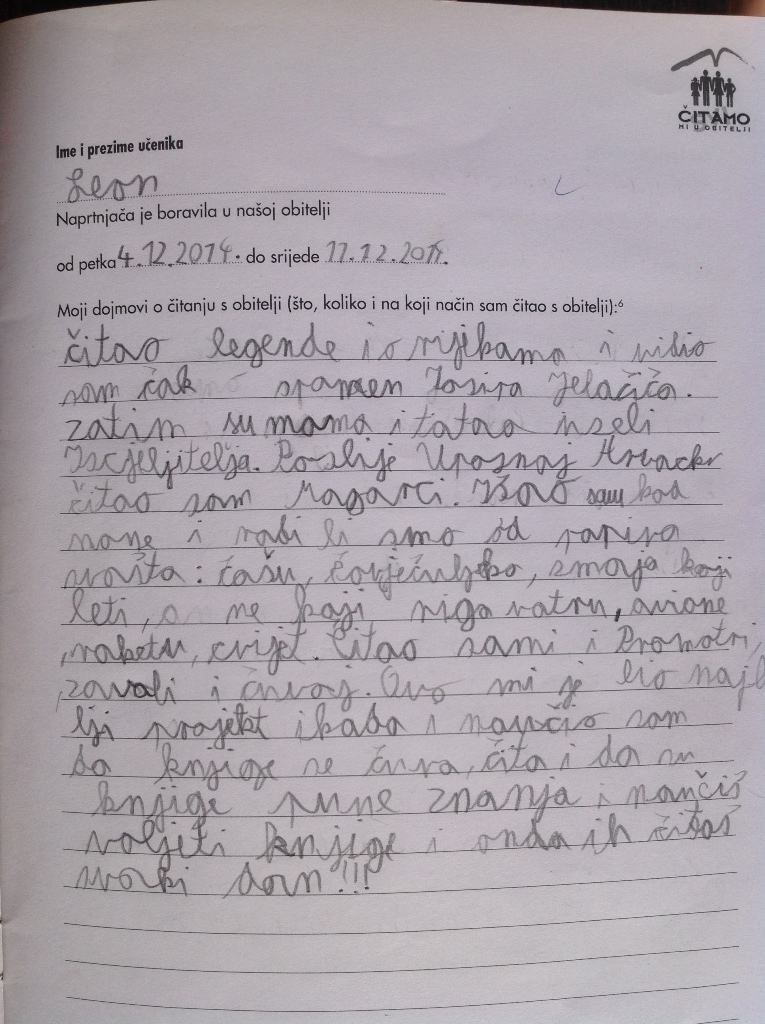 ČITAMO
MI U OBITELJI
Ime i prezime učenika
Leon
Naprtnjača je boravila u našoj obitelji
od petka 4.12.2014. do srijede 17.12.2014.
Moji dojmovi o čitanju s obitelji (što, koliko i na koji način sam čitao s obitelji):⁶
čitao legende i o rijekama i vidio
sam čak spomen Josipa Jelačića.
zatim su mama i tata uzeli
Iscjeljitelja. Poslije Upoznaj Hrvacku
čitao sam Magarci. Išao sam kod
none i radili smo od papira
svašta: čašu, čovječuljka, zmaja koji
leti, a ne koji riga vatru, avione
, raketu, cvijet. Čitao sam i Promotri,
zavoli i čuvaj. Ovo mi je bio najb
lji projekt ikada i naučio sam
da knjige se čuva, čita i da su
knjige pune znanja i naučiš
voljeti knjige i onda ih čitaš
svaki dan!!!